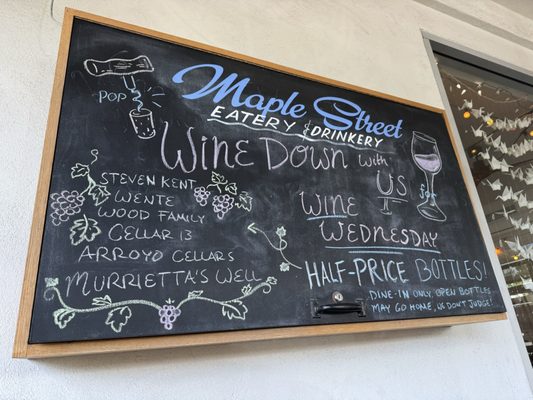 POP
Maple Street
EATERY & DRINKERY
WINE DOWN WITH
US
STEVEN KENT
WENTE
WOOD FAMILY
CELLAR 13
ARROYO CELLARS
MURRIETTA'S WELL
for
WINE
WEDNESDAY
HALF-PRICE BOTTLES!
DINE-IN ONLY, OPEN BOTTLES
MAY GO HOME, WE DON'T JUDGE!